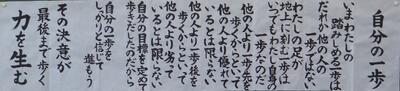 自分の一歩
いまわたしの
踏みしめる一歩は
だれの他の人の
一歩ではない
わたしの足が
地上に刻む一歩は
いつでもわたし自身の
一歩なのだ
他の人より一歩先を
歩くからといって
他の人より優れて
いるとは限らない
他の人より一歩後を
歩くからといって
他の人より劣って
いるとは限らない
自分の目標を定めて
歩きだしたのだから
自分の一歩を
しっかりと信じて
進もう
その決意が
最後まで歩く
力を生む